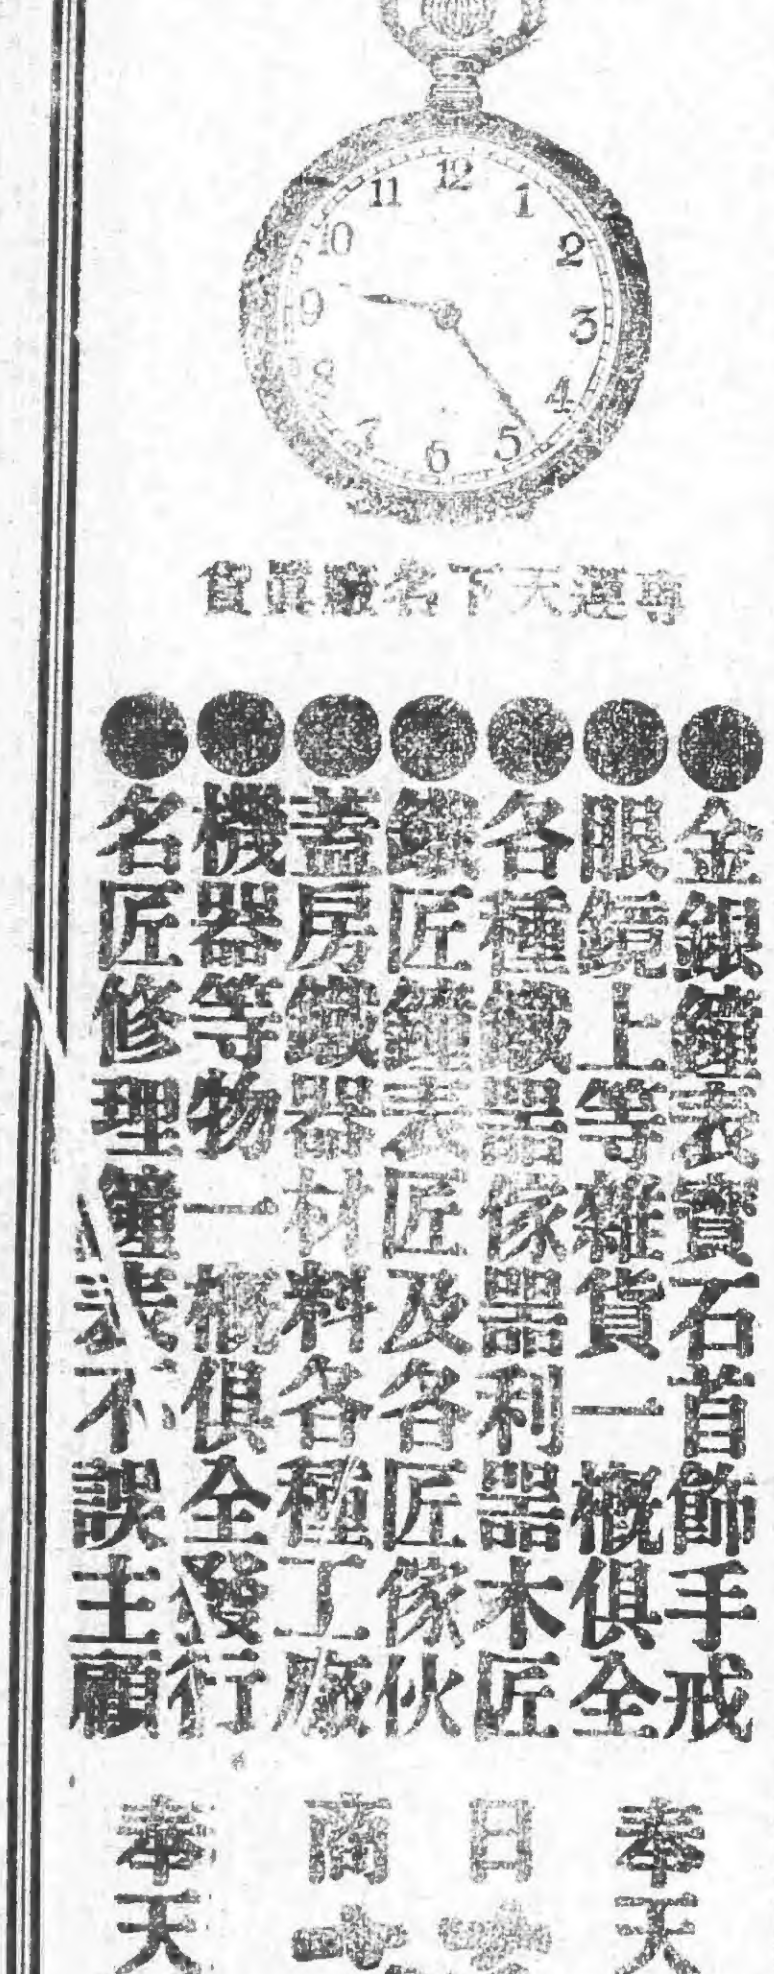 12
1
2
3
4
5
6
7
8
9
10
11
專運天下名廠眞貨
●金銀鐘表寶石首飾手戒
●眼鏡上等雜貨一概俱全
●各種鐵器傢器利器木匠
●鐵匠鐘表匠及各匠傢伙
●蓋房鐵器材料各種工廠
●機器等物一概俱全發行
●名匠修理鐘表不誤主顧
奉天
日
商
奉天